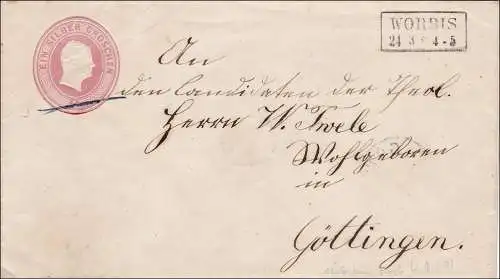 EIN SILBER GROSCHEN
WORBIS
24 3 * 4-5
An
den Candidaten der Theol.
Herrn W. Twele
Wohlgeboren
in
Göttingen.